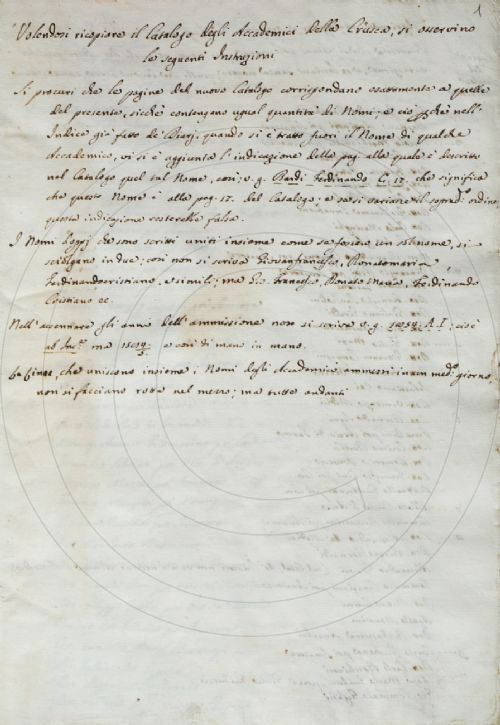 1
Volendosi ricopiare il Catalogo degli Accademici della Crusca, si osservino
le seguenti Instruzioni
Si procuri che le pagine del nuovo Catalogo corrispondano esattamente a quelle
del presente, sicchè contengano ugual quantità di Nomi; e ciò pchè nell'
Indice già fatto de' Diarj, quando si è tratto fuori il Nome di qualche
Accademico, vi si è aggiunta l'indicazione della pag. alla quale è descritto
nel Catalogo quel tal Nome, così; v.g. Bardi Ferdinando C. 17. che significa
che questo Nome è alla pag. 17. del Catalogo; e se si variasse il sopred.º ordine,
questa indicazione resterebbe falsa.
I Nomi doppj che sono scritti uniti insieme come se fossero un sol nome, si
sciolgano in due; così non si scriva Giovanfrancesco, Renatomaria,
Ferdinandocristiano, e simili; ma Gio. Francesco, Renato Maria, Ferdinando
Cristiano ec.
Nell' accennare gli anni dell' ammissione non si scriva v.g. A.I; cioè
ma e così di mano in mano.
Le linee, che uniscono insieme i Nomi degli Accademici ammessi in un med.º giorno,
non si facciano rotte nel mezzo; ma tutte andanti